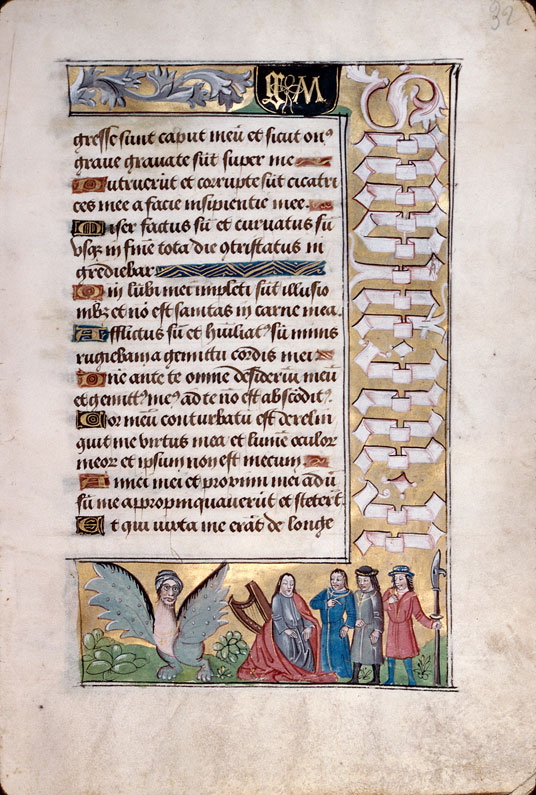 32
S M
gresse sunt caput meū et sicut onꝰ
graue grauate sūt super me
Putruerūt et corrupte sūt cicatri
ces mee a facie insipientie mee.
Miser factus sū et curuatus sū
vsqꝫ in finē tota die ꝯtristatus in
grediebar
Qm̄ lūbi mei impleti sūt illusio
nibꝫ et nō est sanitas in carne mea.
Afflictus sū et hūiliatꝰ sū nimis
rugiebam a gemittu cordis mei
Dne ante te omnē desideriū meū
et gemittꝰ meꝰ ad te nō est abscōditꝰ
Cor meū conturbatū est derelin
quit me virtus mea et lumē oculor
meor et ipsum non est mecum
Amici mei et proximi mei adū
sū me appropinquauerūt et stetert
Et qui iuxta me erāt de longe